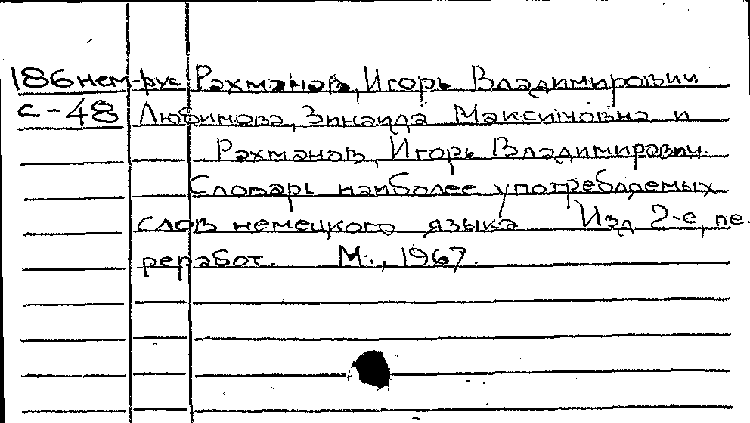 186нем-рус Рахманов, Игорь Владимирович
с-48 Любимова, Зинаида Максимовна и
Рахманов, Игорь Владимирович.
Словарь наиболее употребляемых
слов немецкого языка Изд 2-е, пе
реработ. М., 1967.